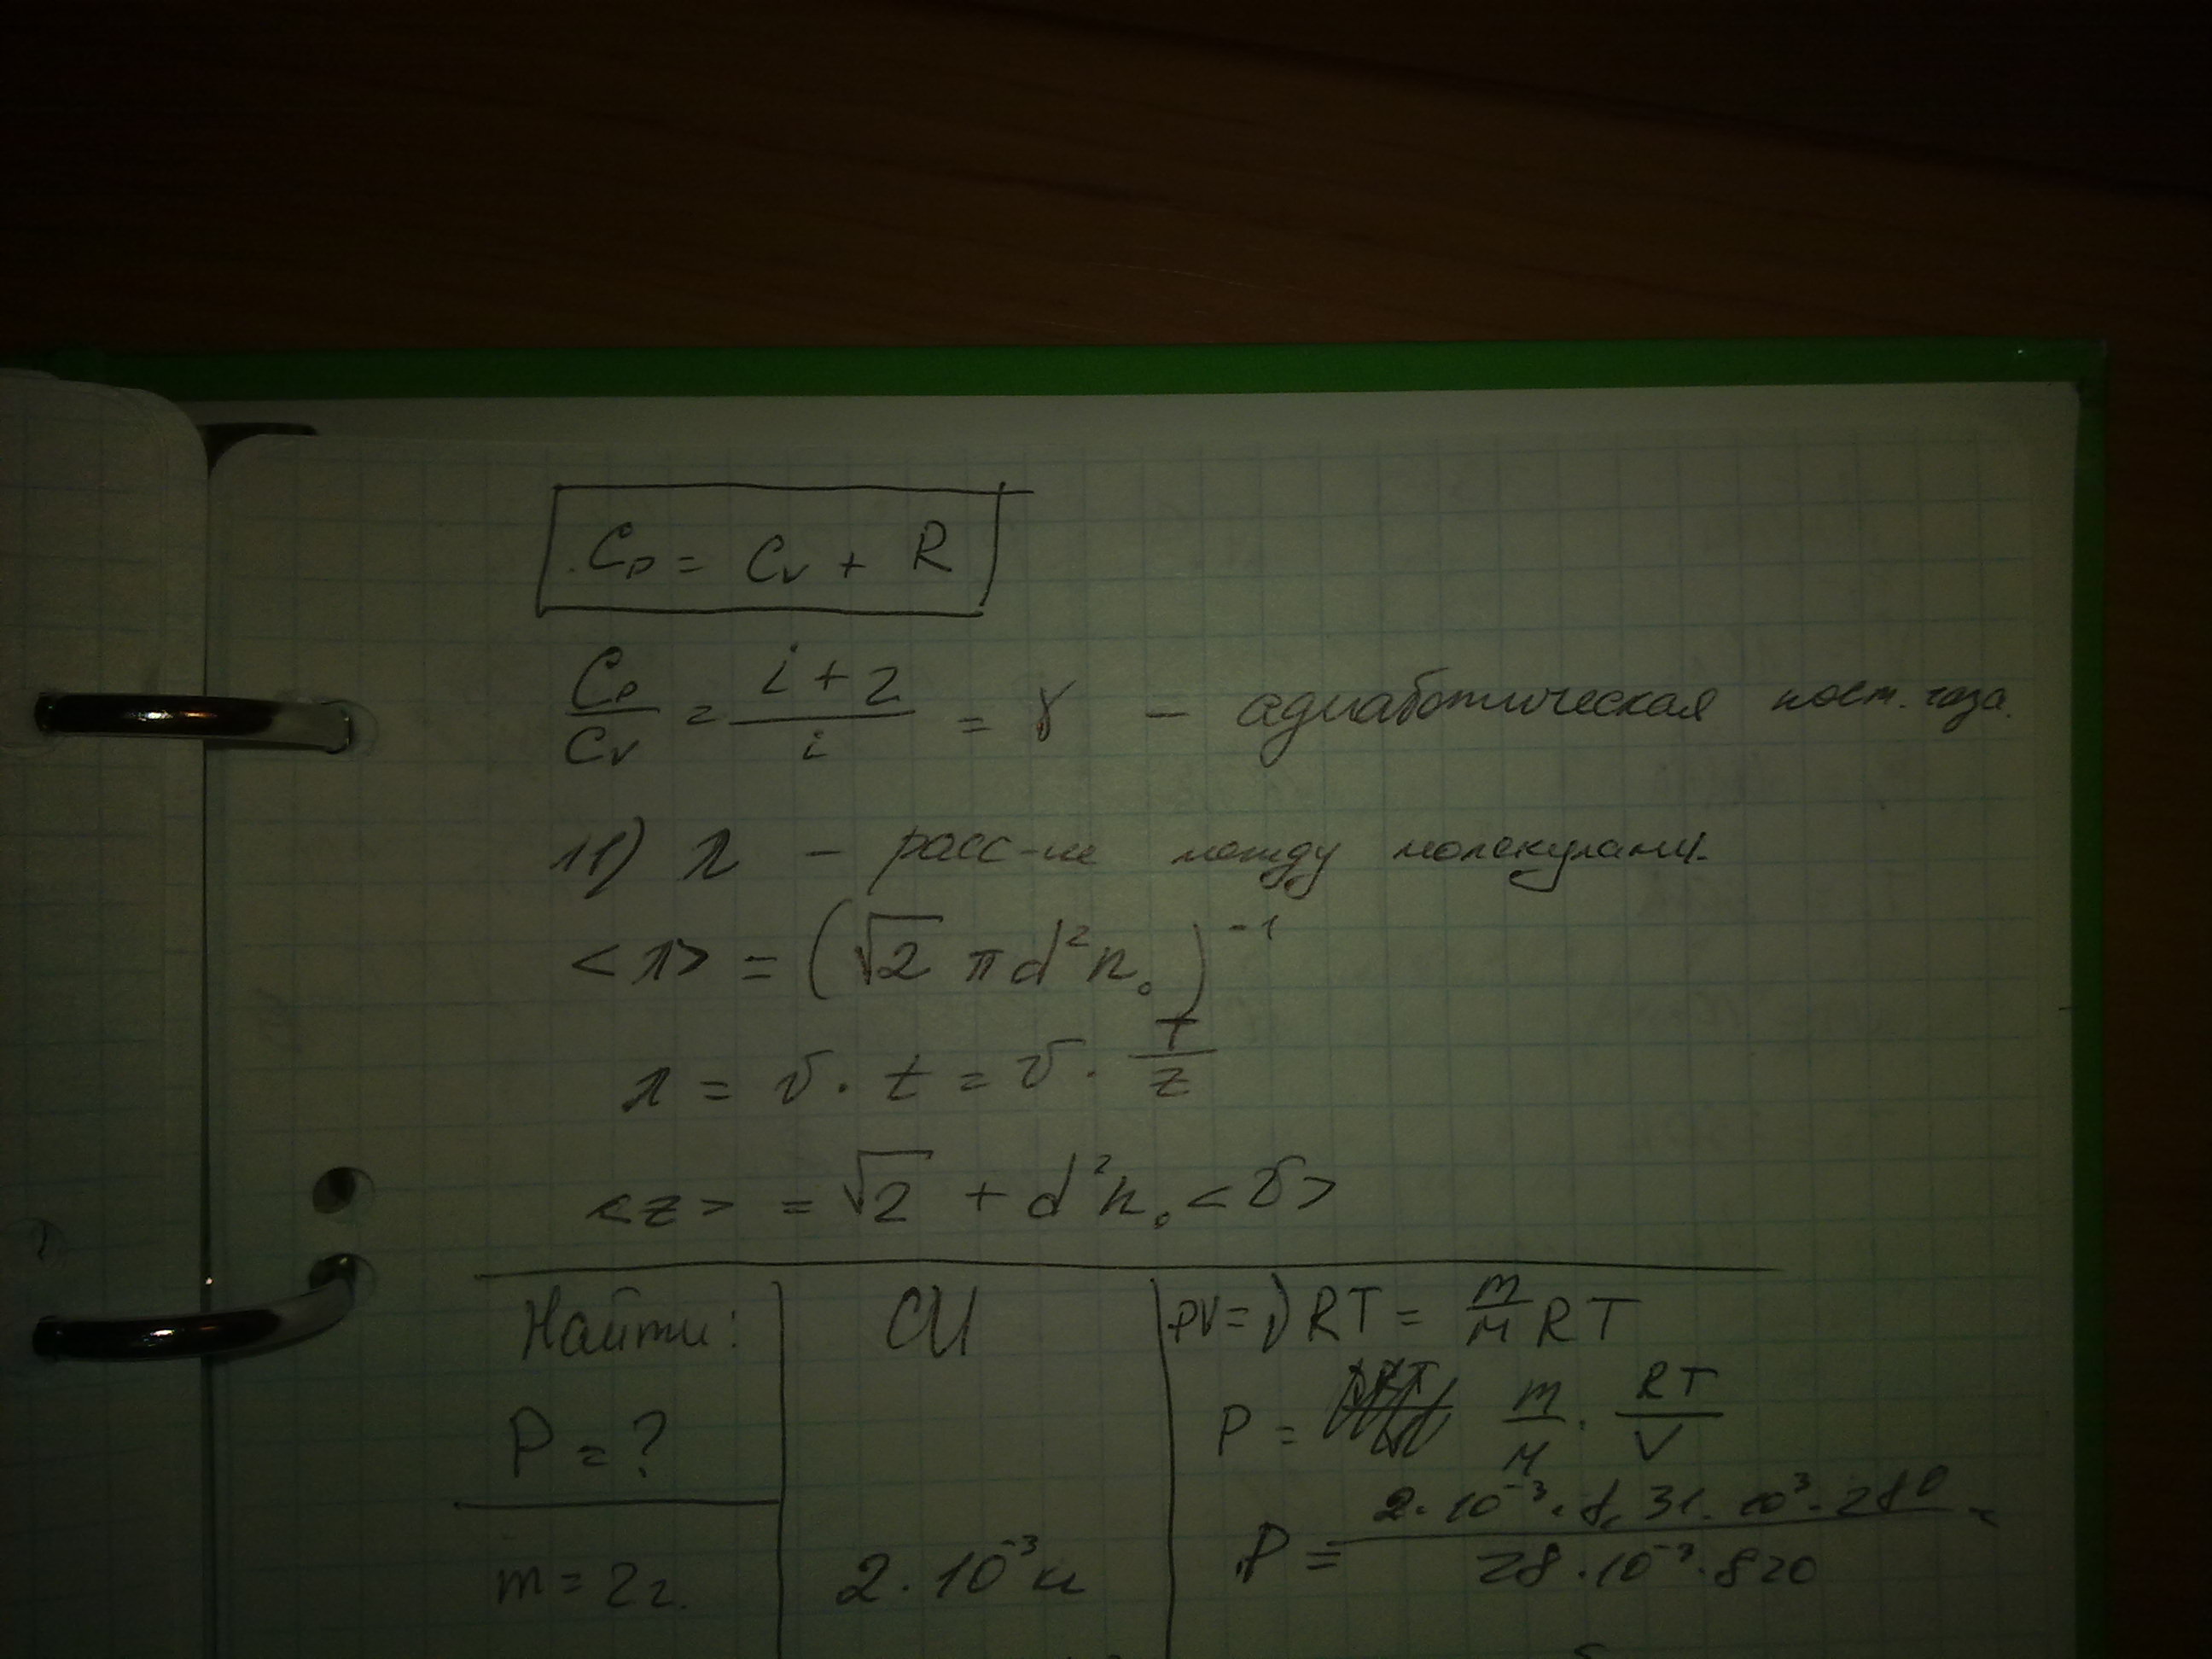 Cp = Cv + R
Cp/Cv = (i+2)/i = γ - адиабатическая пост. газа.
11) λ - расс-ие между молекулами.
<λ> = (√2 π d²n₀)⁻¹
λ = v · t = v · t/z
<z> = √2 + d²n₀<v>
Найти:
P = ?
m = 2г.
СИ
2 · 10⁻³ к
pV = ν RT = m/M RT
P = m/M · RT/V
P = (2 · 10⁻³ · 8,31 · 10³ · 280)/(28 · 10⁻³ · 820) =